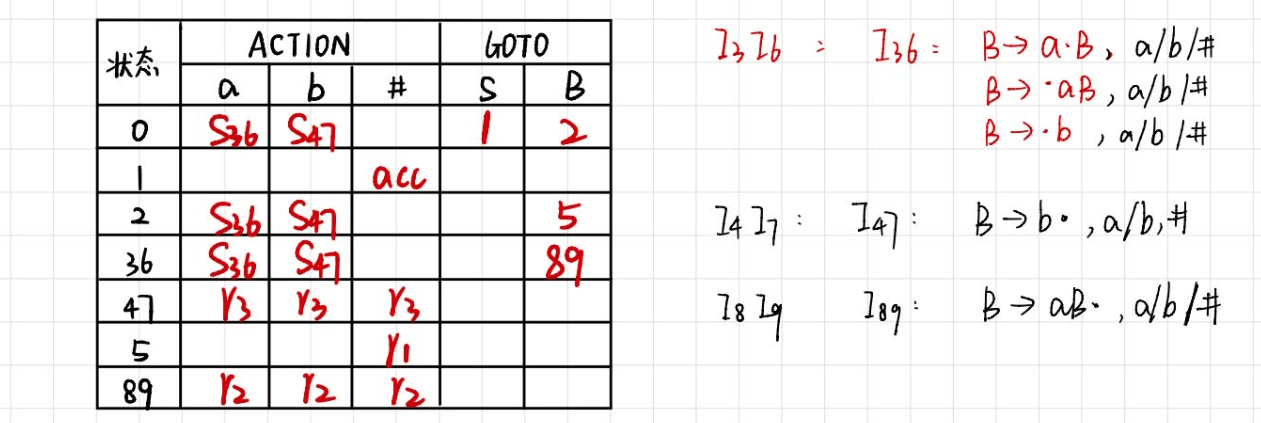 状态 ACTION GOTO
a b # S B
0 S36 S47 1 2
1 acc
2 S36 S47 5
36 S36 S47 89
47 r3 r3 r3
5 r1
89 r2 r2 r2
I3 I6 : I36 : B → a·B, a/b/#
B → ·aB, a/b/#
B → ·b , a/b/#
I4 I7 : I47 : B → b· , a/b,#
I8 I9 I89 : B → aB· , a/b/#